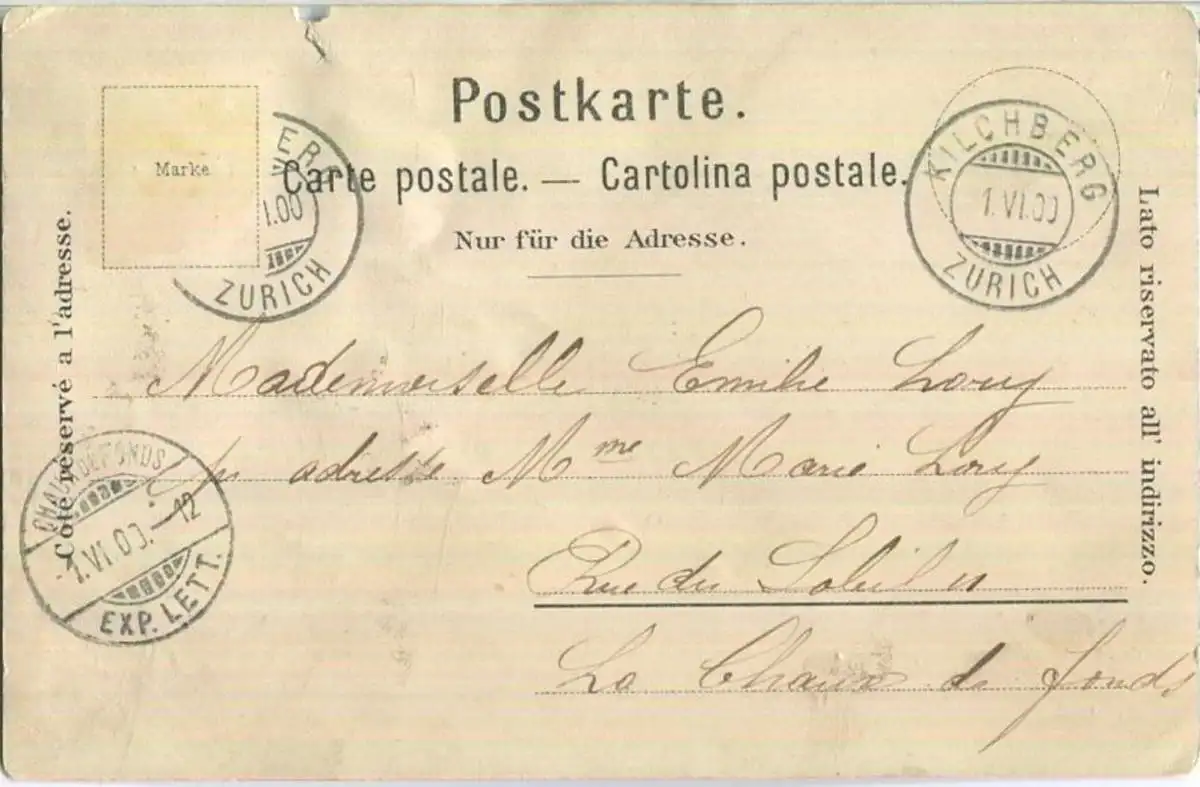 Postkarte.
Carte postale. — Cartolina postale.
Nur für die Adresse.
Marke
ERG
1.00
ZURICH
KILCHBERG
1.VI.00
ZURICH
Côté réservé à l'adresse.
Lato riservato all' indirizzo.
Mademoiselle Emilie Lory
adresse Mme Marie Lory
Rue du 11
La Chaux de fonds
CHAUX DE FONDS
1.VI.00.–12
EXP. LETT.